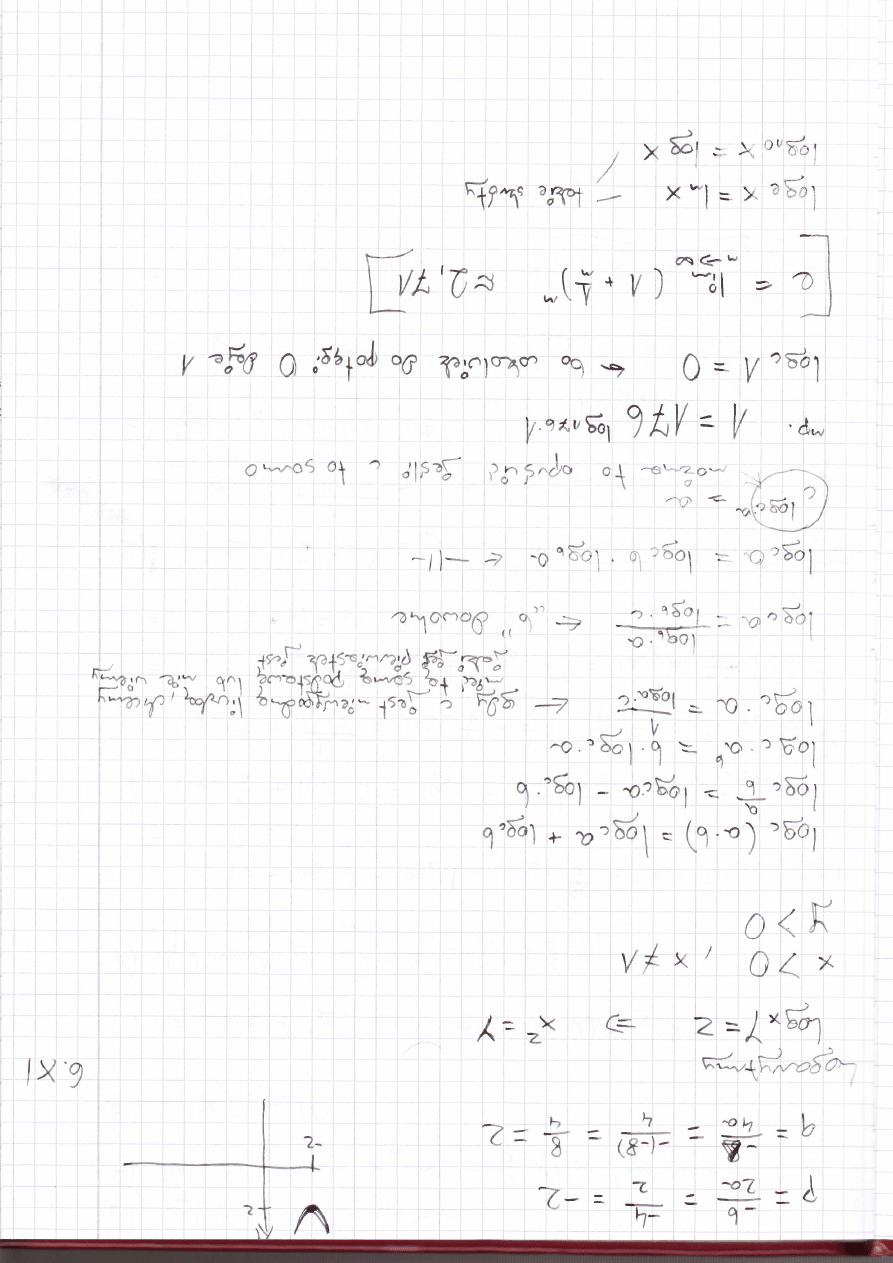 p = -b/2a = -4/2 = -2
q = -Δ/4a = -(-8)/4 = 8/4 = 2
2
-2
6.XI
Logarytmy
log_x Y = z ⇒ x^z = Y
x > 0 , x ≠ 1
y > 0
log_c (a·b) = log_c a + log_c b
log_c a/b = log_c a - log_c b
log_c a^b = b · log_c a
log_c a = 1/log_a c ← gdy c jest niewygodną liczbą, chcemy
mieć tę samą podstawę lub nie wiemy
jaki jest pierwiastek jest
log_c a = log_b a/log_b c ← „b” dowolne
log_c a = log_c b · log_b a ← —||—
c^(log_c a) = a
można to opuścić jeśli c to samo
np. 1 = 176^(log_176 1)
log_c 1 = 0 ← bo cokolwiek do potęgi 0 daje 1
[e = lim n→∞ (1 + 1/n)^n ≈ 2,71]
log_e x = ln x — takie skróty
log_10 x = log x